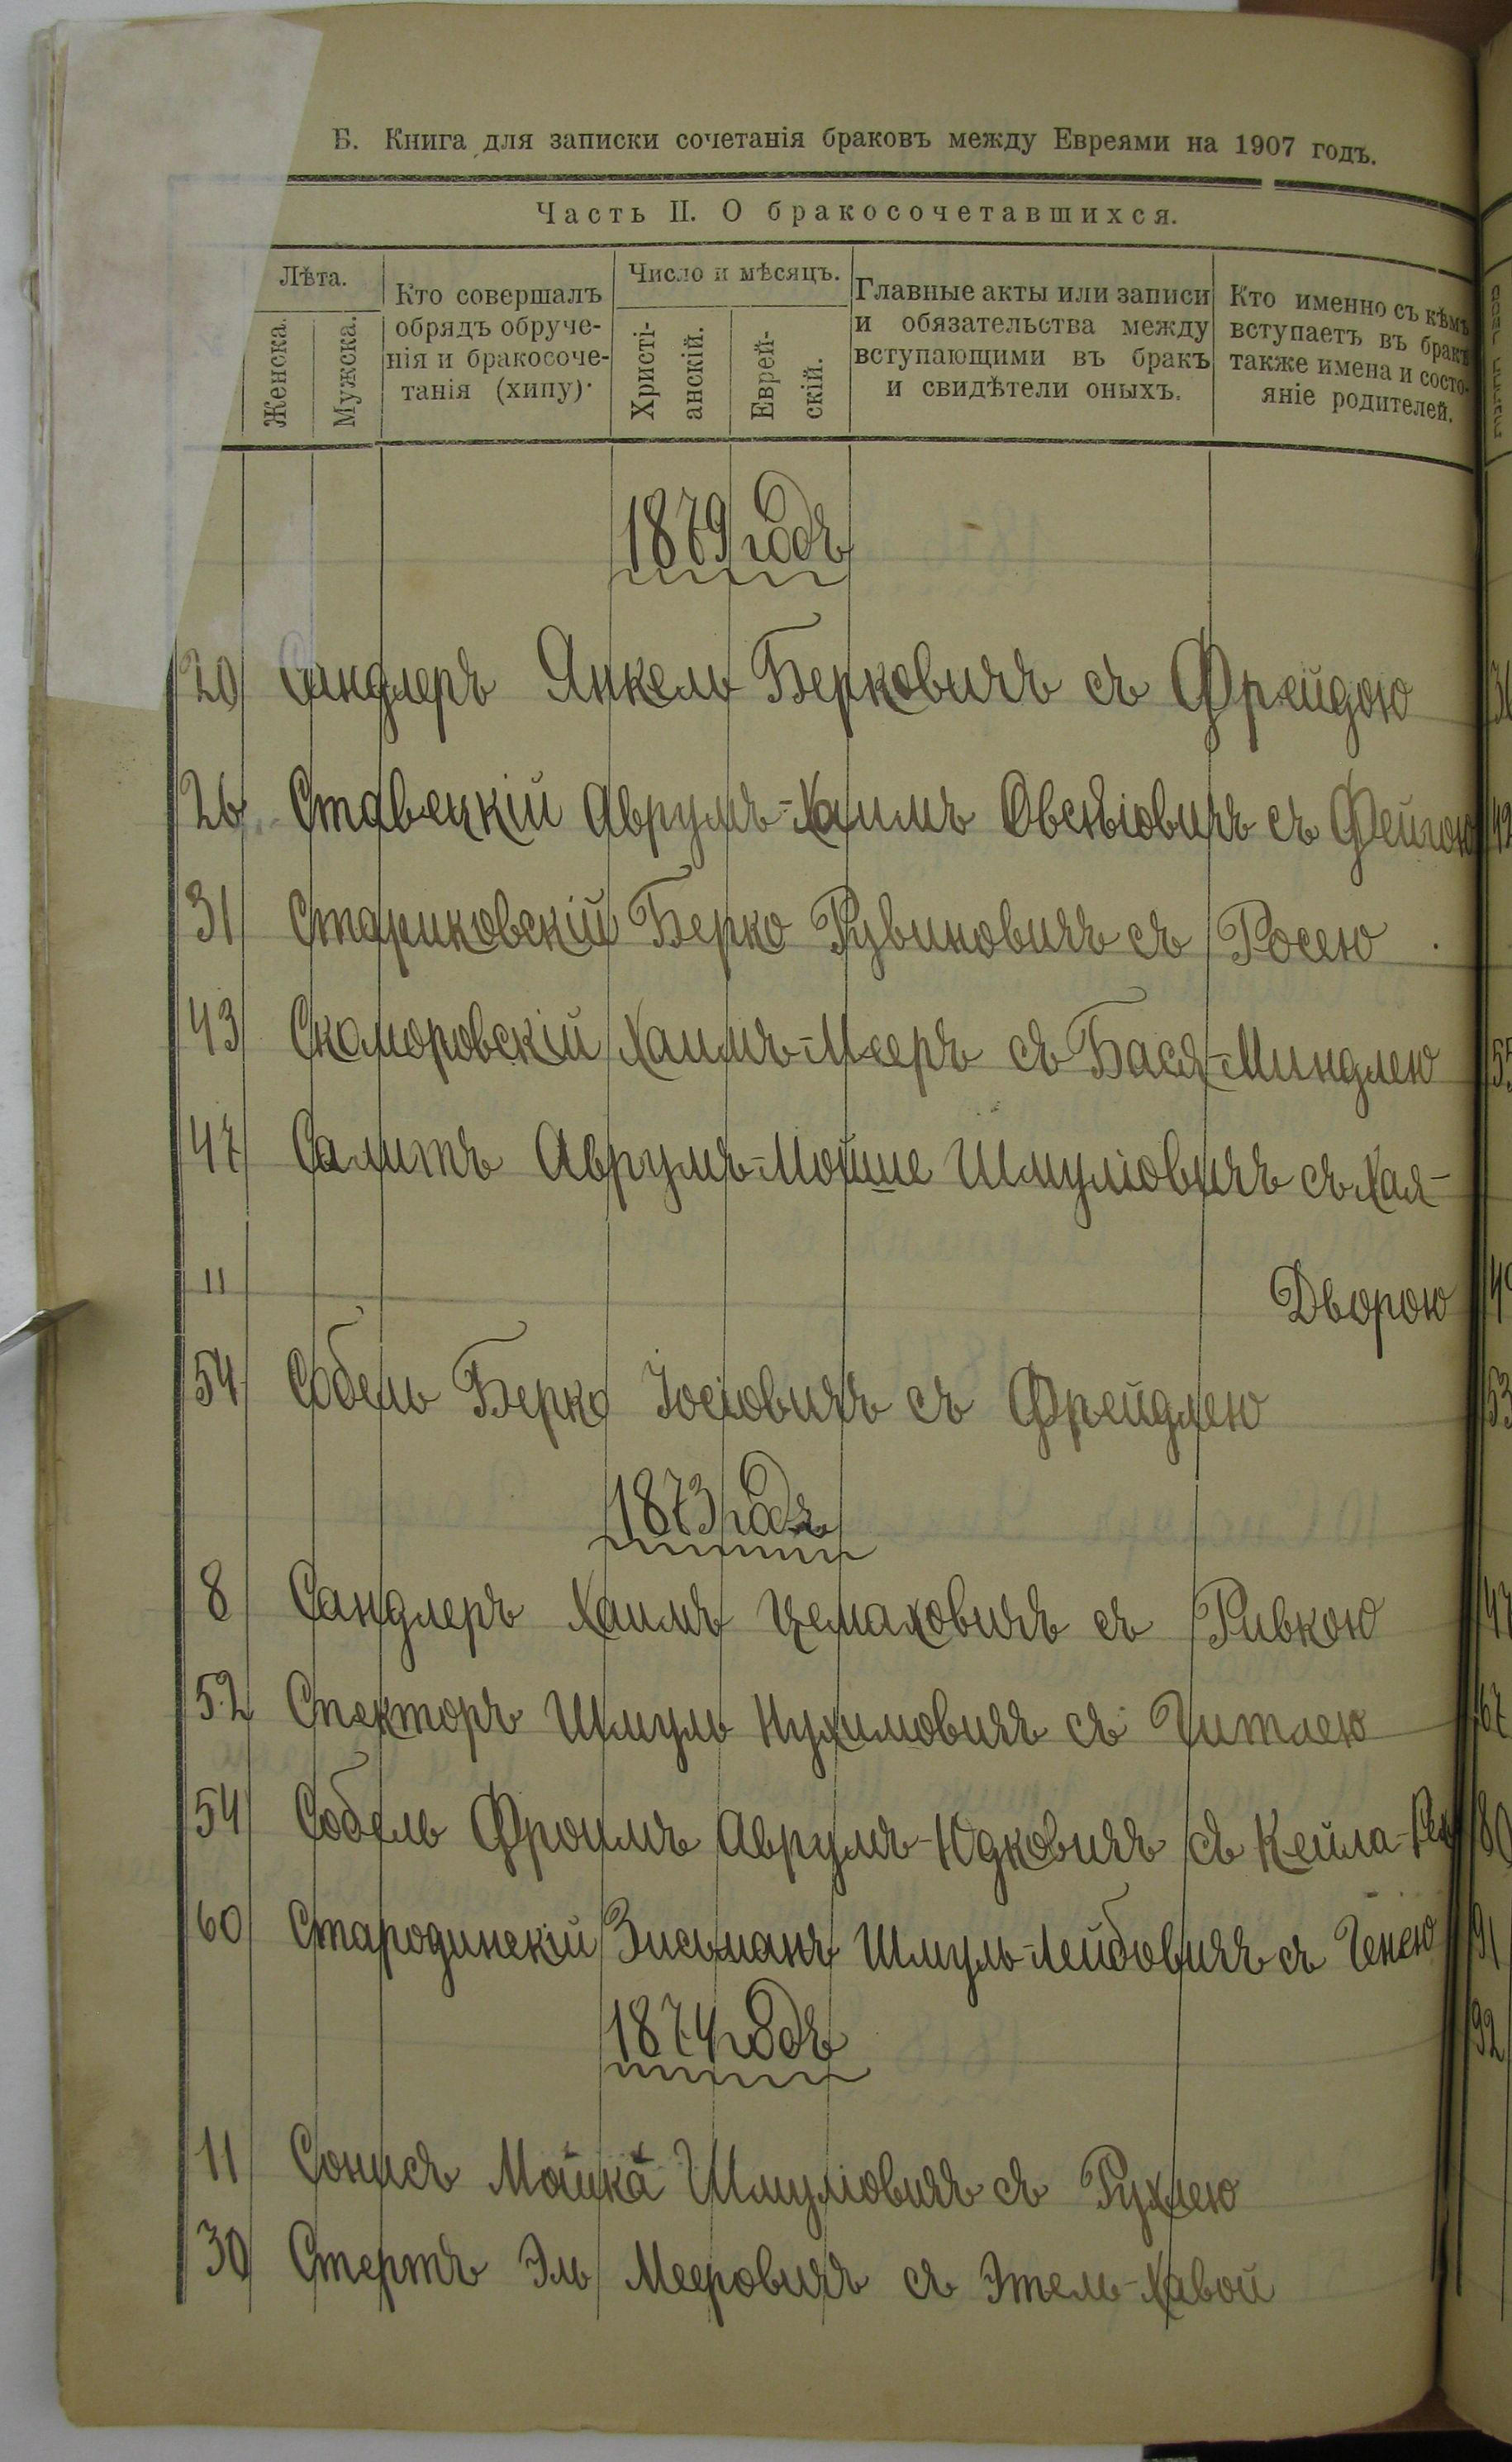 Б. Книга для записки сочетанія браковъ между Евреями на 1907 годъ.
Часть II. О бракосочетавшихся.
Лѣта.
Женска.
Мужска.
Кто совершалъ
обрядъ обруче-
нія и бракосоче-
танія (хипу).
Число и мѣсяцъ.
Христі-
анскій.
Еврей-
скій.
Главные акты или записи
и обязательства между
вступающими въ бракъ
и свидѣтели оныхъ.
Кто именно съ кѣмъ
вступаетъ въ бракъ
также имена и состо-
яніе родителей.
1879 годъ
20 Сандлеръ Янкель Берковичъ съ Фрейдою
26 Ставецкій Аврумъ-Хаимъ Овсѣіовичъ съ Фейгою
31 Стариковскій Берко Рувиновичъ съ Росею
43 Скоморовскій Хаимъ-Мееръ съ Бася-Миндлею
47 Салитъ Аврумъ-Мойше Шмуліовичъ съ Хая-
" Дворою
54 Собель Берко Іосіовичъ съ Фрейдлею
1873 годъ
8 Сандлеръ Хаимъ Цемаховичъ съ Ривкою
52 Спекторъ Шмуль Нухимовичъ съ Читлею
54 Собель Фроимъ Аврумъ-Юдковичъ съ Кейла-
60 Стародинскій Зисьманъ Шмуль-Лейбовичъ съ Генею
1874 годъ
11 Сонисъ Мошка Шмуліовичъ съ Рухлею
30 Стертъ Эль Мееровичъ съ Этель-Хавой